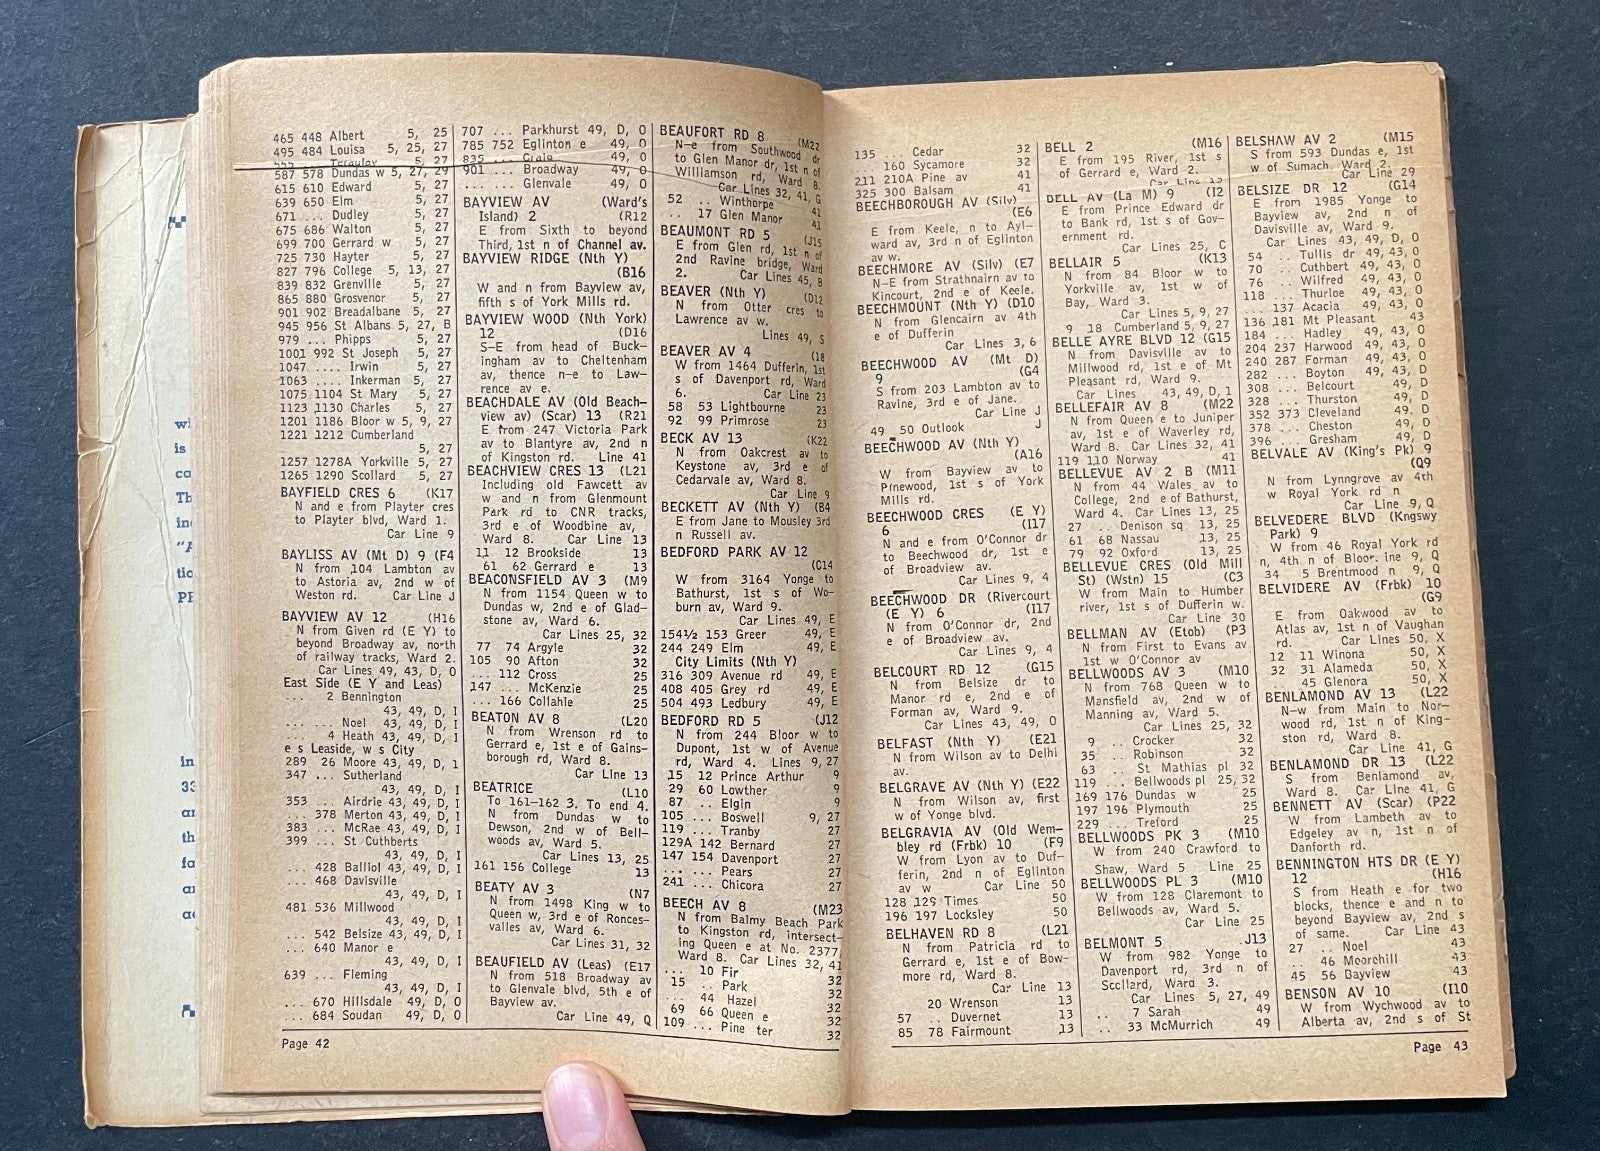 wi
is
ca
Th
in
"A
tic
PE
in
33
an
th
fa
an
ac
465 448 Albert 5, 25
495 484 Louisa 5, 25, 27
555 Teraulay 5, 27
587 578 Dundas w 5, 27, 29
615 610 Edward 5, 27
639 650 Elm 5, 27
671 ... Dudley 5, 27
675 686 Walton 5, 27
699 700 Gerrard w 5, 27
725 730 Hayter 5, 27
827 796 College 5, 13, 27
839 832 Grenville 5, 27
865 880 Grosvenor 5, 27
901 902 Breadalbane 5, 27
945 956 St Albans 5, 27, B
979 ... Phipps 5, 27
1001 992 St Joseph 5, 27
1047 .... Irwin 5, 27
1063 .... Inkerman 5, 27
1075 1104 St Mary 5, 27
1123 1130 Charles 5, 27
1201 1186 Bloor w 5, 9, 27
1221 1212 Cumberland
5, 27
1257 1278A Yorkville 5, 27
1265 1290 Scollard 5, 27
BAYFIELD CRES 6 (K17
N and e from Playter cres
to Playter blvd, Ward 1.
Car Line 9
BAYLISS AV (Mt D) 9 (F4
N from 104 Lambton av
to Astoria av, 2nd w of
Weston rd. Car Line J
BAYVIEW AV 12 (H16
N from Given rd (E Y) to
beyond Broadway av, north
of railway tracks, Ward 2.
Car Lines 49, 43, D, O
East Side (E Y and Leas)
... 2 Bennington
43, 49, D, I
... ... Noel 43, 49, D, I
... 4 Heath 43, 49, D, I
e s Leaside, w s City
289 26 Moore 43, 49, D, 1
347 ... Sutherland
43, 49, D, I
353 ... Airdrie 43, 49, D, I
... 378 Merton 43, 49, D, I
383 ... McRae 43, 49, D, I
399 ... St Cuthberts
43, 49, D, I
... 428 Balliol 43, 49, D, I
... 468 Davisville
43, 49, D, I
481 536 Millwood
43, 49, D, I
... 542 Belsize 43, 49, D, I
... 640 Manor e
43, 49, D, I
639 ... Fleming
43, 49, D, I
... 670 Hillsdale 49, D, O
... 684 Soudan 49, D, O
707 ... Parkhurst 49, D, O
785 752 Eglinton e 49, O
835 ... Craig 49, O
901 ... Broadway 49, O
... ... Glenvale 49, O
BAYVIEW AV (Ward's
Island) 2 (R12
E from Sixth to beyond
Third, 1st n of Channel av.
BAYVIEW RIDGE (Nth Y)
(B16
W and n from Bayview av,
fifth s of York Mills rd.
BAYVIEW WOOD (Nth York)
12 (D16
S-E from head of Buck-
ingham av to Cheltenham
av, thence n-e to Law-
rence av e.
BEACHDALE AV (Old Beach-
view av) (Scar) 13 (R21
E from 247 Victoria Park
av to Blantyre av, 2nd n
of Kingston rd. Line 41
BEACHVIEW CRES 13 (L21
Including old Fawcett av
w and n from Glenmount
Park rd to CNR tracks,
3rd e of Woodbine av,
Ward 8. Car Line 13
11 12 Brookside 13
61 62 Gerrard e 13
BEACONSFIELD AV 3 (M9
N from 1154 Queen w to
Dundas w, 2nd e of Glad-
stone av, Ward 6.
Car Lines 25, 32
77 74 Argyle 32
105 90 Afton 32
... 112 Cross 25
147 ... McKenzie 25
... 166 Collahie 25
BEATON AV 8 (L20
N from Wrenson rd to
Gerrard e, 1st e of Gains-
borough rd, Ward 8.
Car Line 13
BEATRICE (L10
To 161-162 3. To end 4.
N from Dundas w to
Dewson, 2nd w of Bell-
woods av, Ward 5.
Car Lines 13, 25
161 156 College 13
BEATY AV 3 (N7
N from 1498 King w to
Queen w, 3rd e of Ronces-
valles av, Ward 6.
Car Lines 31, 32
BEAUFIELD AV (Leas) (E17
N from 518 Broadway av
to Glenvale blvd, 5th e of
Bayview av.
Car Line 49, Q
BEAUFORT RD 8 (M22
N-e from Southwood dr
to Glen Manor dr, 1st n of
Williamson rd, Ward 8.
Car Lines 32, 41, G
52 .. Winthorpe 41
.. 17 Glen Manor 41
BEAUMONT RD 5 (J15
E from Glen rd, 1st n of
2nd Ravine bridge, Ward
2. Car Lines 45, B
BEAVER (Nth Y) (D12
N from Otter cres to
Lawrence av w.
Lines 49, S
BEAVER AV 4 (18
W from 1464 Dufferin, 1st
s of Davenport rd, Ward
6. Car Line 23
58 53 Lightbourne 23
92 99 Primrose 23
BECK AV 13 (K22
N from Oakcrest av to
Keystone av, 3rd e of
Cedarvale av, Ward 8.
Car Line 9
BECKETT AV (Nth Y) (B4
E from Jane to Mousley 3rd
n Russell av.
BEDFORD PARK AV 12
(C14
W from 3164 Yonge to
Bathurst, 1st s of Wo-
burn av, Ward 9.
Car Lines 49, E
154½ 153 Greer 49, E
244 249 Elm 49, E
City Limits (Nth Y)
316 309 Avenue rd 49, E
408 405 Grey rd 49, E
504 493 Ledbury 49, E
BEDFORD RD 5 (J12
N from 244 Bloor w to
Dupont, 1st w of Avenue
rd, Ward 4. Lines 9, 27
15 12 Prince Arthur 9
29 60 Lowther 9
87 .. Elgin 9
105 ... Boswell 9, 27
119 ... Tranby 27
129A 142 Bernard 27
147 154 Davenport 27
... ... Pears 27
241 ... Chicora 27
BEECH AV 8 (M23
N from Balmy Beach Park
to Kingston rd, intersect-
ing Queen e at No. 2377,
Ward 8. Car Lines 32, 41
... 10 Fir
15 .. Park 32
... 44 Hazel 32
69 66 Queen e 32
109 ... Pine ter 32
32
Page 42
135 ... Cedar 32
... 160 Sycamore 32
211 210A Pine av 41
325 300 Balsam 41
BEECHBOROUGH AV (Silv)
(E6
E from Keele, n to Ayl-
ward av, 3rd n of Eglinton
av w.
BEECHMORE AV (Silv) (E7
N-E from Strathnairn av to
Kincourt, 2nd e of Keele.
BEECHMOUNT (Nth Y) (D10
N from Glencairn av 4th
e of Dufferin
Car Lines 3, 6
BEECHWOOD AV (Mt D)
9 (G4
S from 203 Lambton av to
Ravine, 3rd e of Jane.
Car Line J
49 50 Outlook J
BEECHWOOD AV (Nth Y)
(A16
W from Bayview av to
Pinewood, 1st s of York
Mills rd.
BEECHWOOD CRES (E Y)
6 (I17
N and e from O'Connor dr
to Beechwood dr, 1st e
of Broadview av.
Car Lines 9, 4
BEECHWOOD DR (Rivercourt
(E Y) 6 (I17
N from O'Connor dr, 2nd
e of Broadview av.
Car Lines 9, 4
BELCOURT RD 12 (G15
N from Belsize dr to
Manor rd e, 2nd e of
Forman av, Ward 9.
Car Lines 43, 49, O
BELFAST (Nth Y) (E21
N from Wilson av to Delhi
av.
BELGRAVE AV (Nth Y) (E22
N from Wilson av, first
w of Yonge blvd.
BELGRAVIA AV (Old Wem-
bley rd (Frbk) 10 (F9
W from Lyon av to Duf-
ferin, 2nd n of Eglinton
av w Car Line 50
128 129 Times 50
196 197 Locksley 50
BELHAVEN RD 8 (L21
N from Patricia rd to
Gerrard e, 1st e of Bow-
more rd, Ward 8.
Car Line 13
20 Wrenson 13
57 .. Duvernet 13
85 78 Fairmount 13
BELL 2 (M16
E from 195 River, 1st s
of Gerrard e, Ward 2.
Car Line 13
DELL AV (La M) 9 (I2
E from Prince Edward dr
to Bank rd, 1st s of Gov-
ernment rd.
Car Lines 25, C
BELLAIR 5 (K13
N from 84 Bloor w to
Yorkville av, 1st w of
Bay, Ward 3.
Car Lines 5, 9, 27
9 18 Cumberland 5, 9, 27
BELLE AYRE BLVD 12 (G15
N from Davisville av to
Millwood rd, 1st e of Mt
Pleasant rd, Ward 9.
Car Lines 43, 49, D, 1
BELLEFAIR AV 8 (M22
N from Queen e to Juniper
av, 1st e of Waverley rd,
Ward 8. Car Lines 32, 41
119 110 Norway 41
BELLEVUE AV 2 B (M11
N from 44 Wales av to
College, 2nd e of Bathurst,
Ward 4. Car Lines 13, 25
27 .. Denison sq 13, 25
61 68 Nassau 13, 25
79 92 Oxford 13, 25
BELLEVUE CRES (Old Mill
St) (Wstn) 15 (C3
W from Main to Humber
river, 1st s of Dufferin w.
Car Line 30
BELLMAN AV (Etob) (P3
N from First to Evans av
1st w O'Connor av
BELLWOODS AV 3 (M10
N from 768 Queen w to
Mansfield av, 2nd w of
Manning av, Ward 5.
Car Lines 25, 32
9 .. Crocker 32
35 .. Robinson 32
63 .. St Mathias pl 32
119 ... Bellwoods pl 25, 32
169 176 Dundas w 25
197 196 Plymouth 25
229 ... Treford 25
BELLWOODS PK 3 (M10
W from 240 Crawford to
Shaw, Ward 5 Line 25
BELLWOODS PL 3 (M10
W from 128 Claremont to
Bellwoods av, Ward 5.
Car Line 25
BELMONT 5 J13
W from 982 Yonge to
Davenport rd, 3rd n of
Scollard, Ward 3.
Car Lines 5, 27, 49
.. 7 Sarah 49
.. 33 McMurrich 49
BELSHAW AV 2 (M15
S from 593 Dundas e, 1st
w of Sumach, Ward 2.
Car Line 29
BELSIZE DR 12 (G14
E from 1985 Yonge to
Bayview av, 2nd n of
Davisville av, Ward 9.
Car Lines 43, 49, D, O
54 .. Tullis dr 49, 43, O
70 .. Cuthbert 49, 43, O
76 .. Wilfred 49, 43, O
118 ... Thurloe 49, 43, O
... 137 Acacia 49, 43, O
136 181 Mt Pleasant 43
184 ... Hadley 49, 43, O
204 237 Harwood 49, 43, O
240 287 Forman 49, 43, O
282 ... Boyton 49, 43, D
308 ... Belcourt 49, D
328 ... Thurston 49, D
352 373 Cleveland 49. D
378 ... Cheston 49, D
396 ... Gresham 49, D
BELVALE AV (King's Pk) 9
(Q9
N from Lynngrove av 4th
w Royal York rd n
Car Line 9, Q
BELVEDERE BLVD (Kngswy
Park) 9
W from 46 Royal York rd
n, 4th n of Bloor. ine 9, Q
34 5 Brentmood n 9, Q
BELVIDERE AV (Frbk) 10
(G9
E from Oakwood av to
Atlas av, 1st n of Vaughan
rd. Car Lines 50, X
12 11 Winona 50, X
32 31 Alameda 50, X
45 Glenora 50, X
BENLAMOND AV 13 (L22
N-w from Main to Nor-
wood rd, 1st n of King-
ston rd, Ward 8.
Car Line 41, G
BENLAMOND DR 13 (L22
S from Benlamond av,
Ward 8. Car Line 41, G
BENNETT AV (Scar) (P22
W from Lambeth av to
Edgeley av n, 1st n of
Danforth rd.
BENNINGTON HTS DR (E Y)
12 (H16
S from Heath e for two
blocks, thence e and n to
beyond Bayview av, 2nd s
of same. Car Line 43
27 .. Noel 43
.. 46 Moorehill 43
45 56 Dayview 43
BENSON AV 10 (I10
W from Wychwood av to
Alberta av, 2nd s of St
Page 43